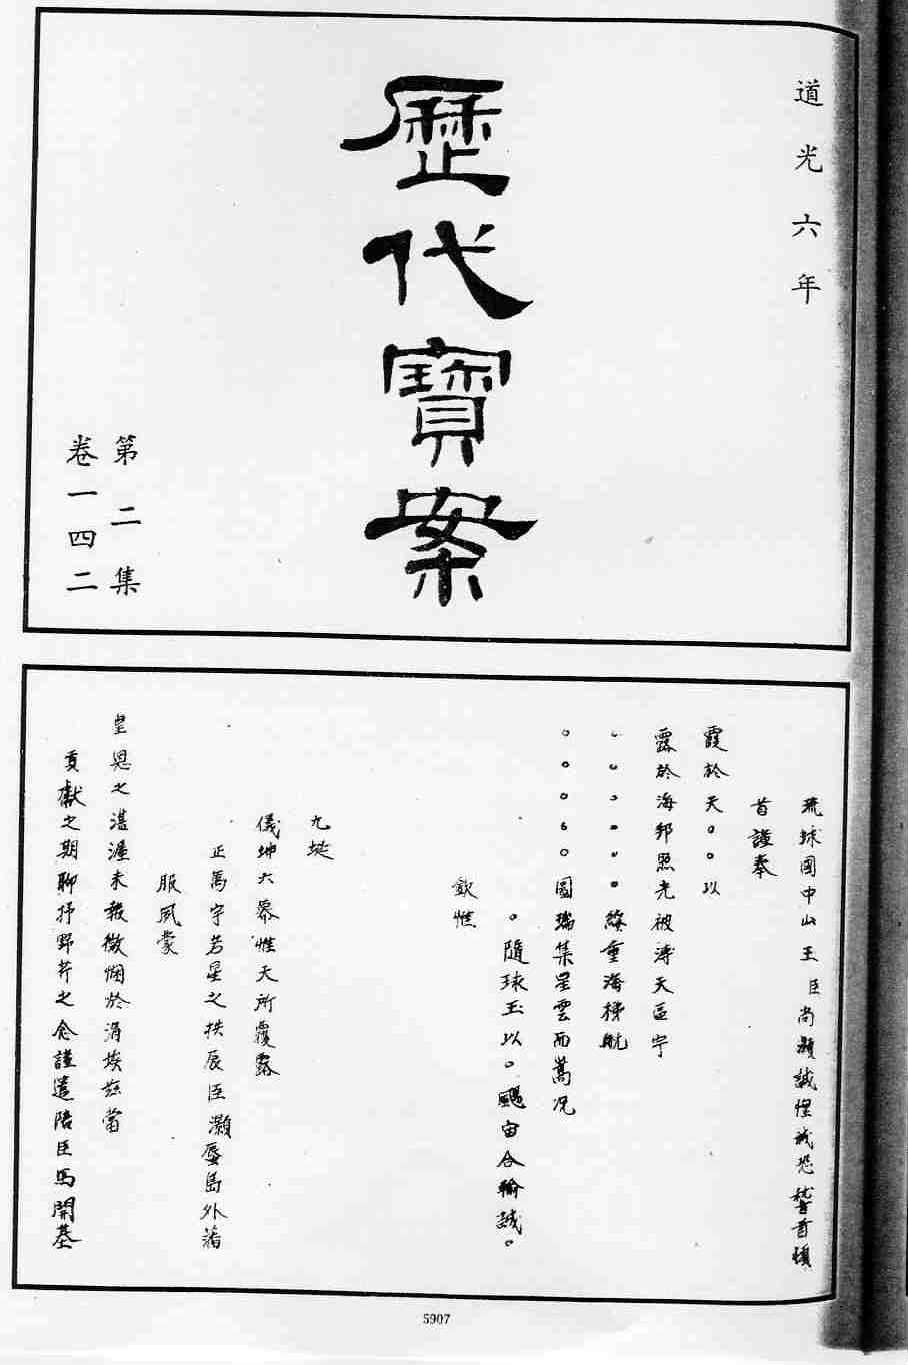 道光六年
歷代寶案
第二集
卷一四二
琉球國中山王臣尚灝誠惶誠恐稽首頓
首謹奉
霞於天。。以
露於海邦照光被溥天區宇
。。。。。。縁重海梯航
。。。。。圖瑞集星雲而嵩况
。隨球玉以。颺宙合輸誠。
欽惟
九埏
儀坤六幕惟天所覆露
正萬宇若星之拱辰臣灝蜃島外藩
服夙蒙
皇恩之湛渥未報微悃於涓埃茲當
貢獻之期聊抒野芹之念謹遣陪臣馬開基
5907